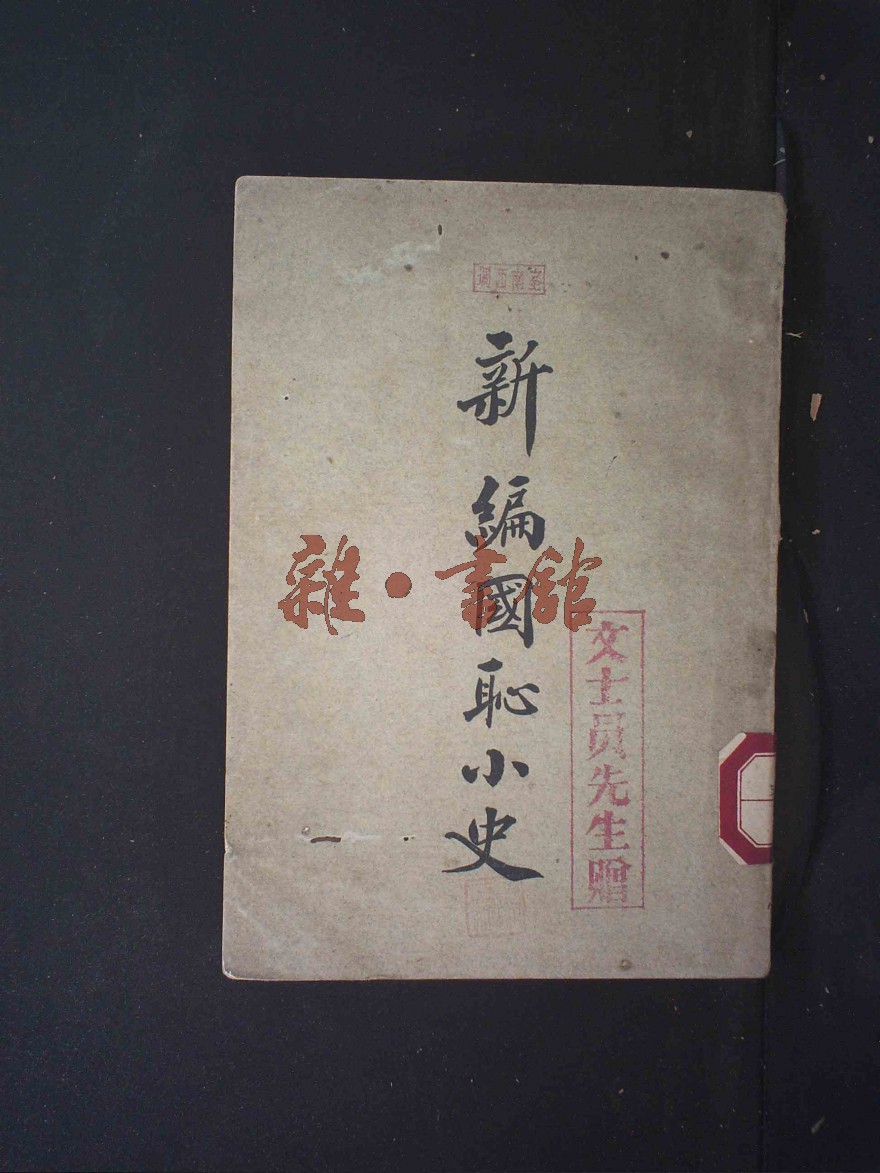 新編國恥小史
文士员先生贈
雜·書館